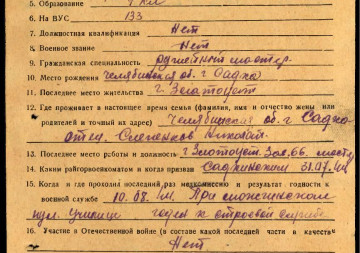 5. Образование 7 кл
6. На ВУС 133
7. Должностная квалификация Нет
8. Военное звание Нет
9. Гражданская специальность оружейный мастер
10. Место рождения Челябинская об. г Садка
11. Последнее место жительства г. Златоуст
12. Где проживает в настоящее время семья (фамилия, имя и отчество жены или
родителей и точный их адрес) Челябинская об. г Садка
отец Николай
13. Последнее место работы и должность г Златоуст. Зав. 66.
14. Каким райгорвоенкоматом и когда призван Садкинским 31.07.
15. Когда и где проходил последний раз медкомиссию и результат годности к
военной службе 10.08. При
пул. Училище годен к строевой службе
16. Участие в Отечественной войне (в составе какой последней части и качестве
Нет